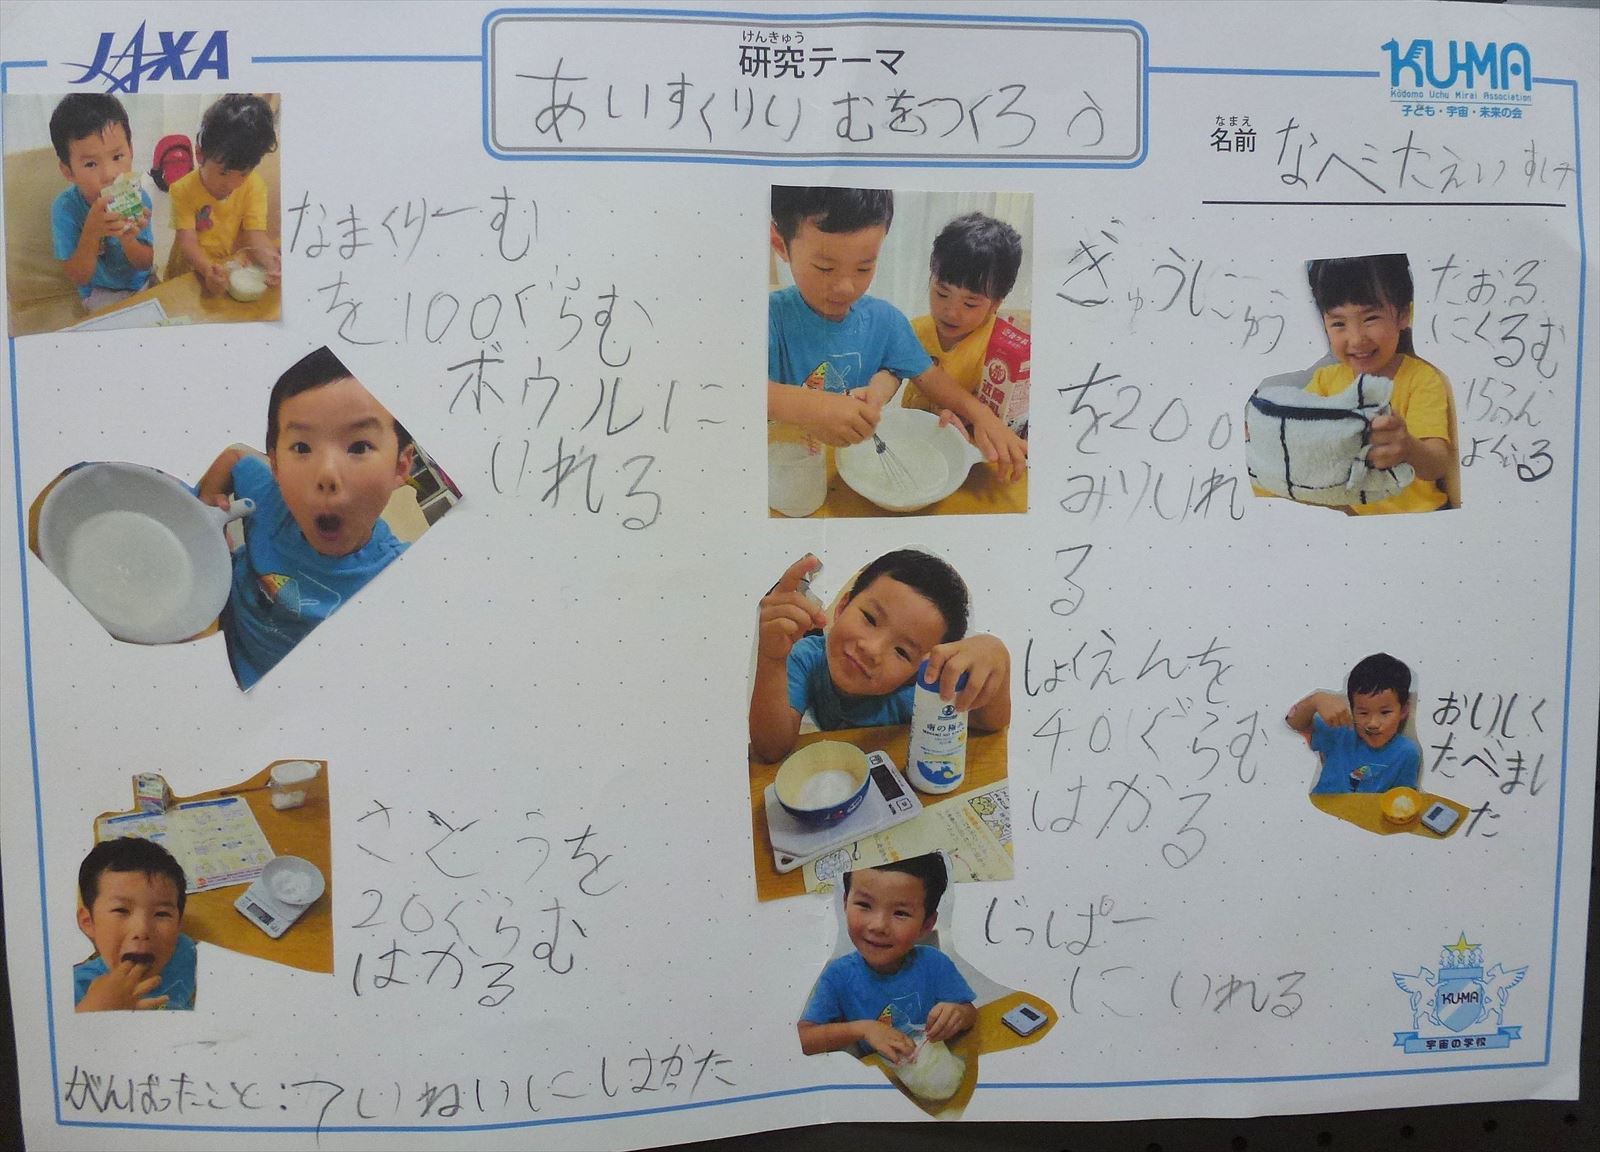 JAXA
けんきゅう
研究テーマ
あいすくりいむをつくろう
KU-MA
Kodomo Uchu Mirai Association
子ども・宇宙・未来の会
なまえ
名前
なべたえいすけ
なまくりーむ
を100ぐらむ
ボウルに
いれる
さとうを
20ぐらむ
はかる
がんばったこと：ていねいにはかった
ぎゅうにゅう
を200
みりいれ
る
しょくえんを
40ぐらむ
はかる
じっぱー
にいれる
たおる
にくるむ
15ふん
おいしく
たべまし
た
KU-MA
宇宙の学校